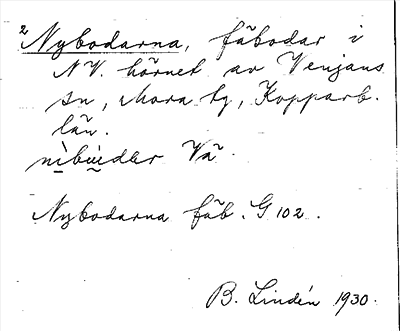 2 Nybodarna, fäbodar i
NV. hörnet av Venjans
sn, Mora tg, Kopparb.
län.
Nybodarna fäb. G 102.
B. Lindén 1930.